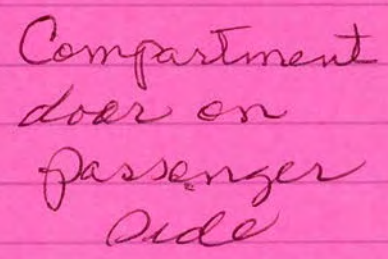 Compartment
door on
passenger
side